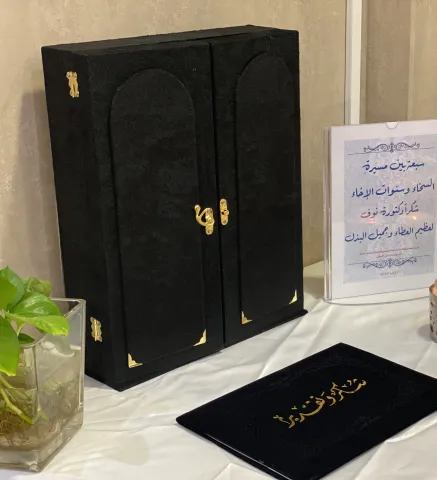 سبعة بين مسيرة
السخاء وسنوات الإخاء
شكراً دكتورة نوف
لعظيم العطاء وجميل البذل
شكر وتقدير